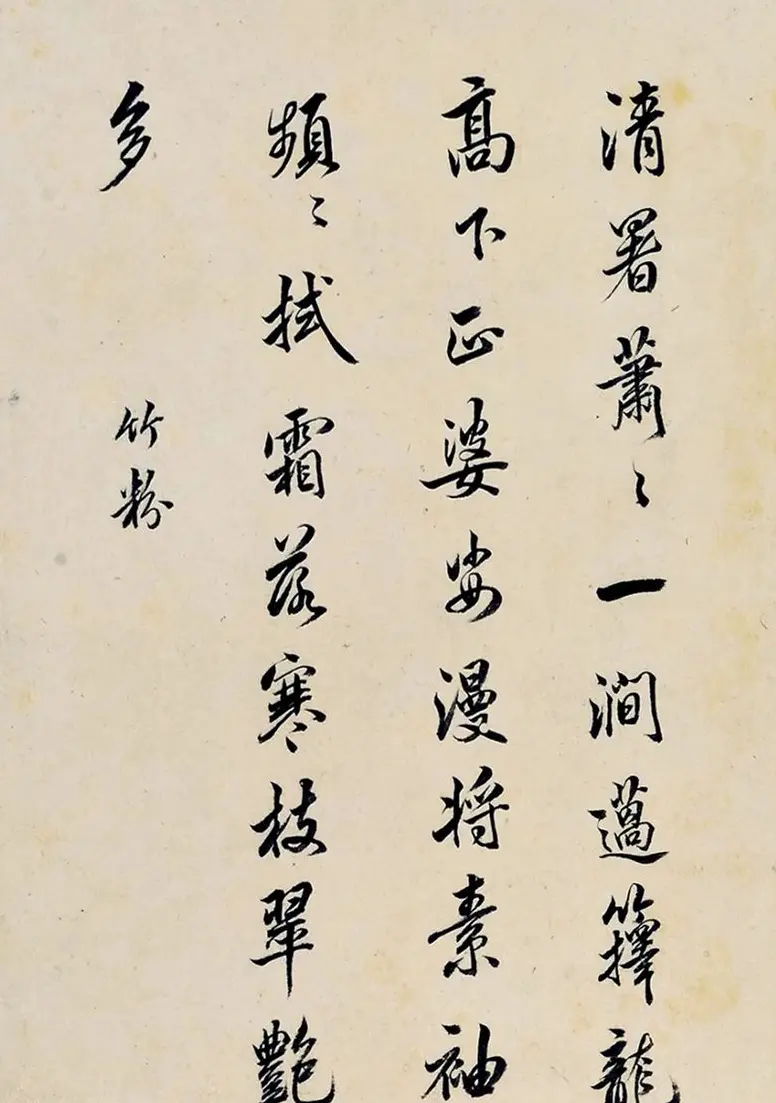 清署蕭〻一澗邁籜龍
高下正婆娑漫將素袖
頻〻拭霜落寒枝翠艷
多
竹粉